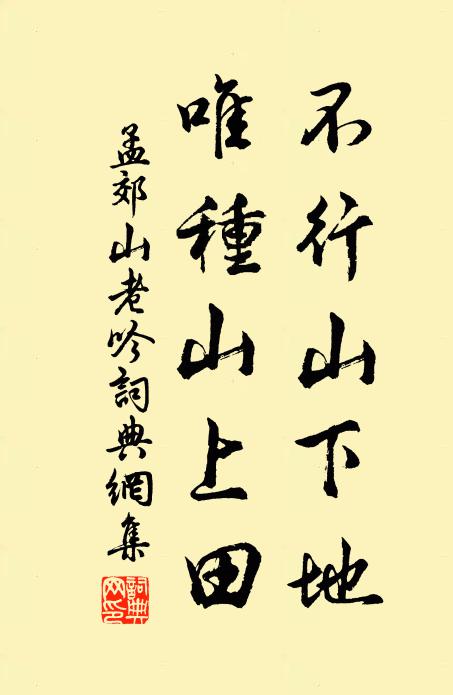 不行山下地
唯種山上田
孟郊山老吟詞典網集
詞典網印